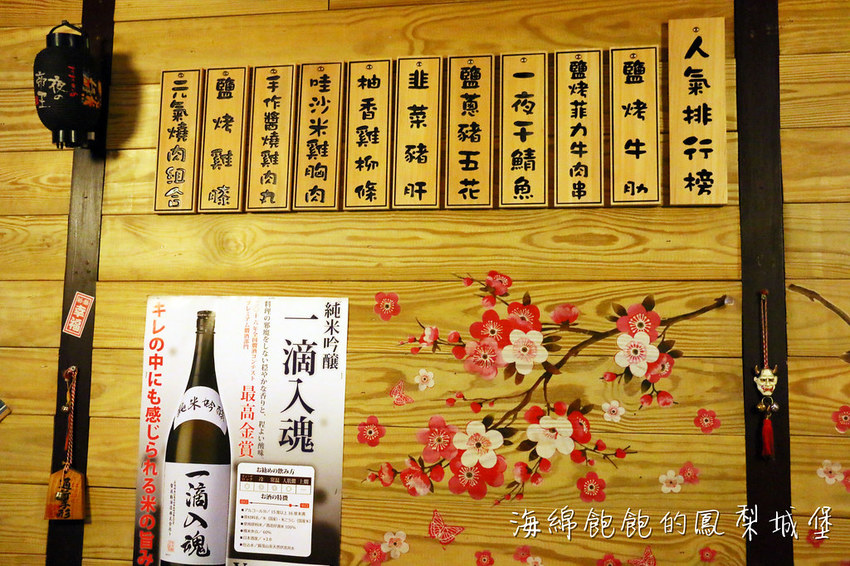 人氣排行榜
鹽烤牛肋
鹽烤菲力牛肉串
一夜干鯖魚
鹽蔥豬五花
韭菜豬肝
柚香雞柳條
哇沙米雞胸肉
手作醬燒雞肉丸
鹽烤雞膝
元氣燒肉組合
夜の
帝王
幸福
純米吟醸
一滴入魂
料理の邪魔をしない穏やかな香りと、程よい酸味
最高金賞
キレの中にも感じられる米の旨み
純米吟醸
一滴入魂
お勧めの飲み方
お酒の特徴
海綿飽飽的鳳梨城堡